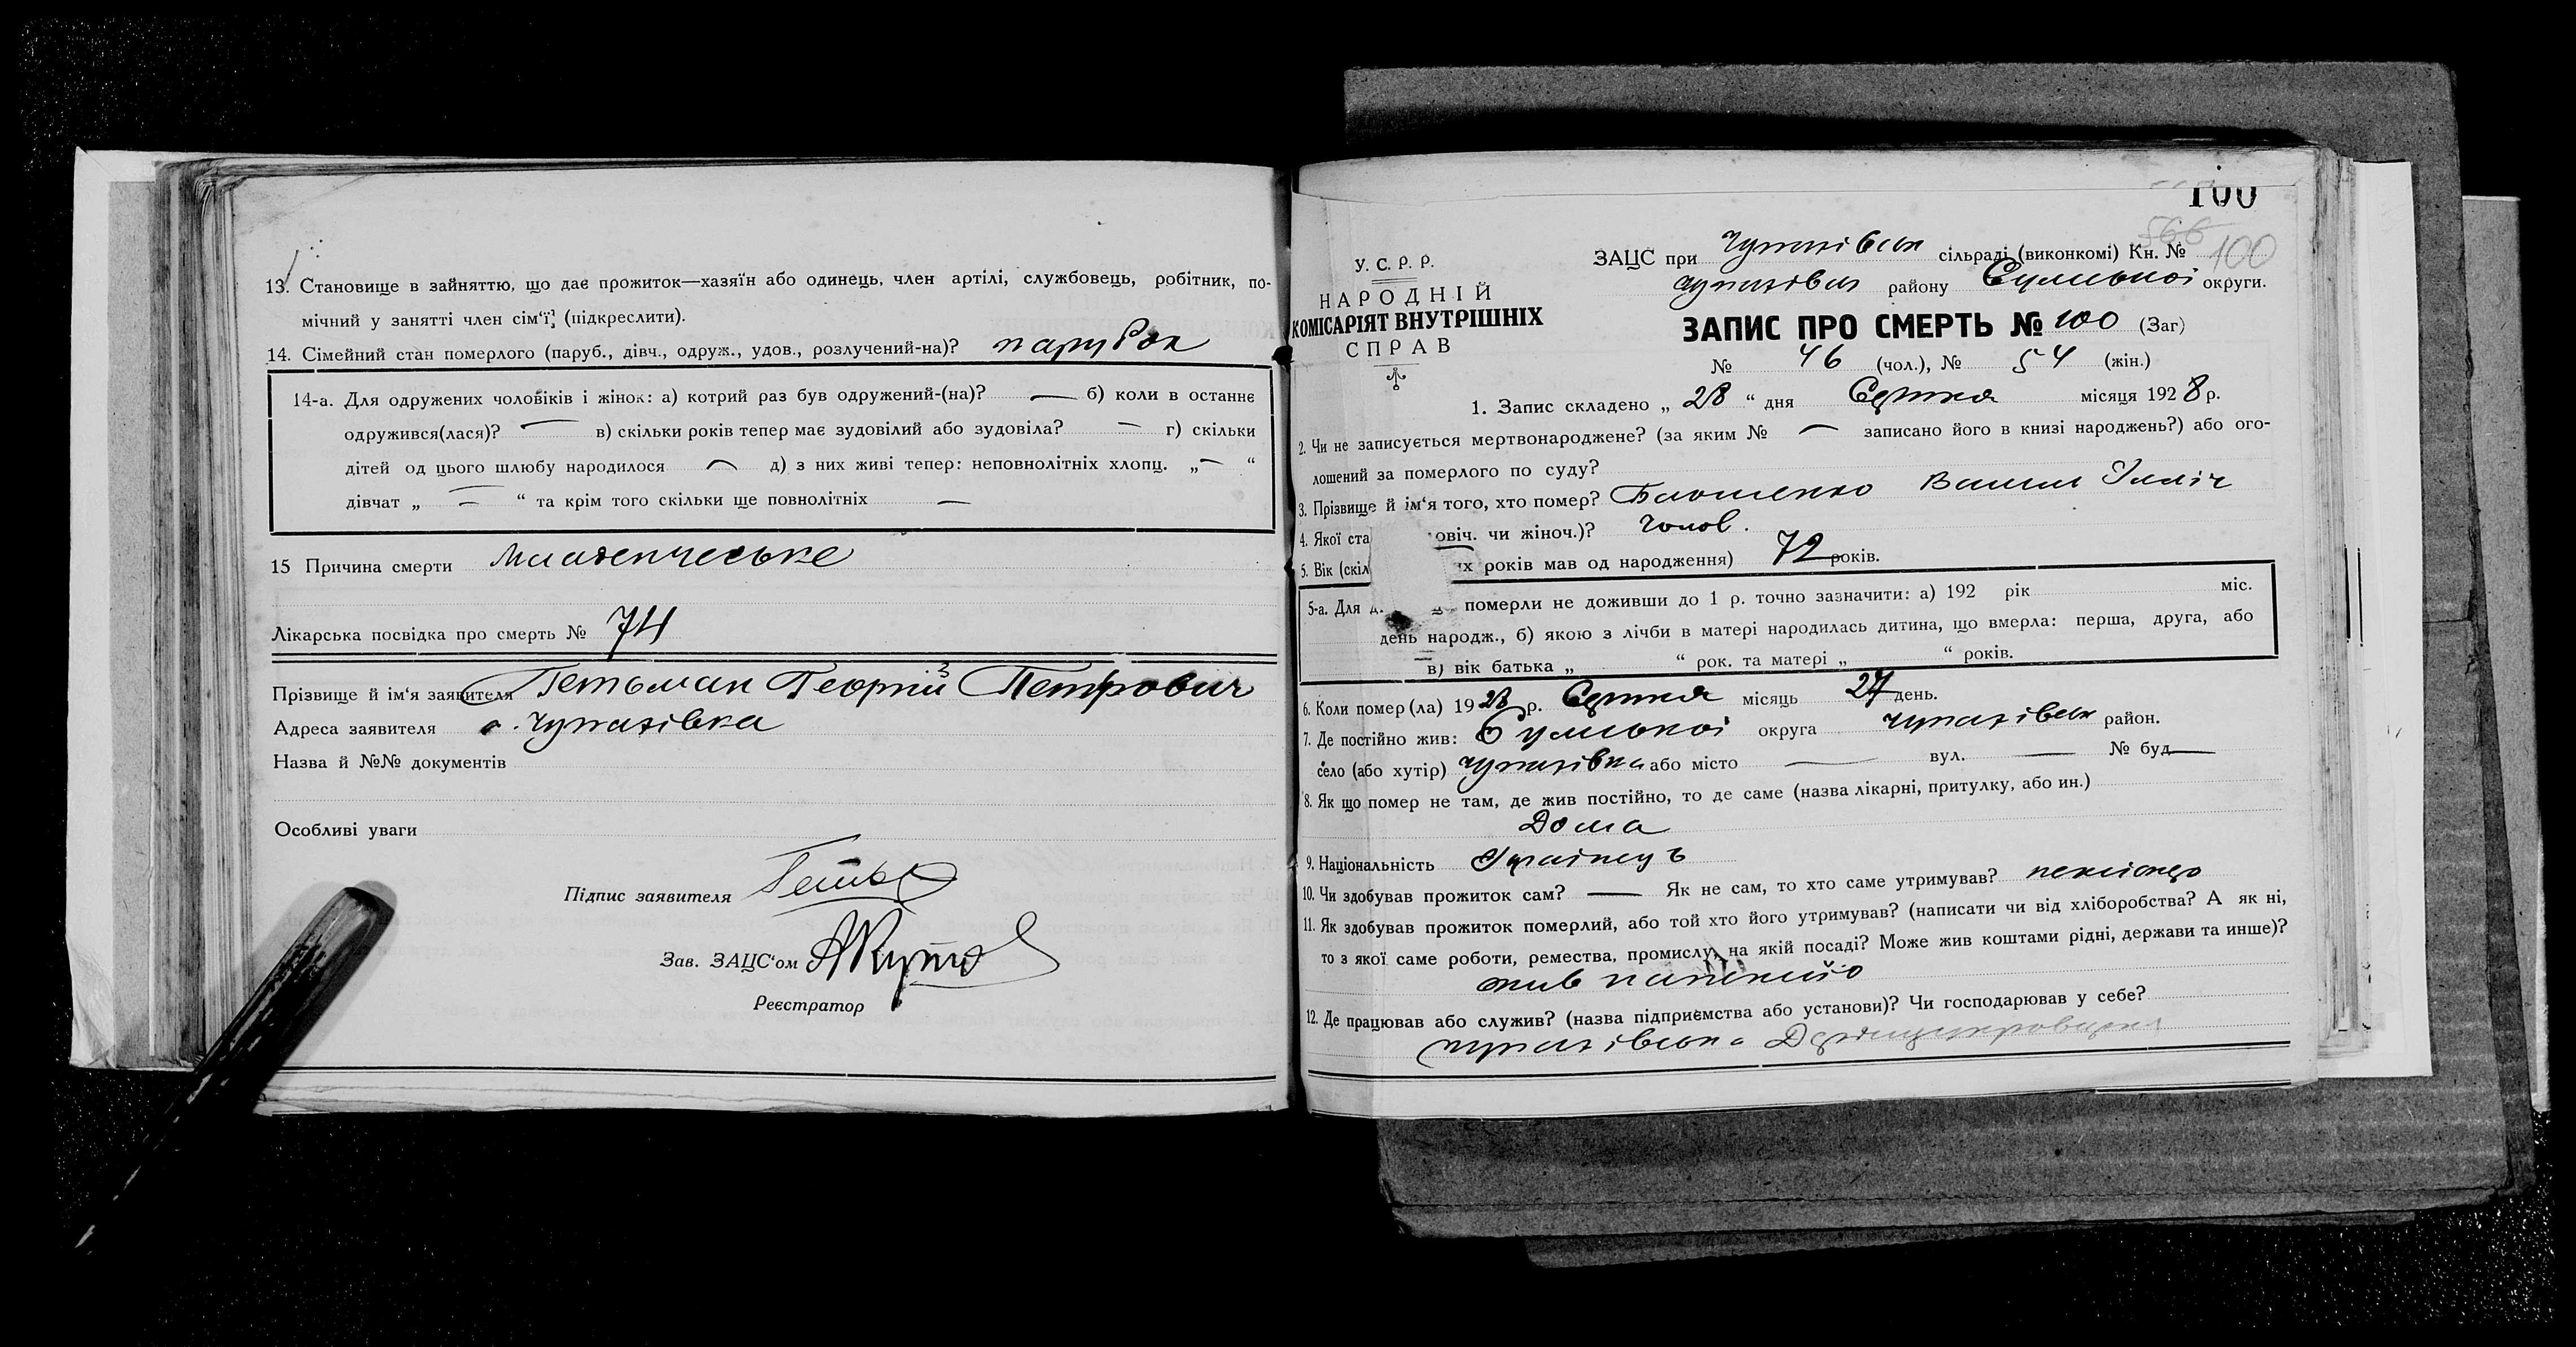 13. Становище в зайняттю, що дає прожиток—хазяїн або одинець, член артілі, службовець, робітник, по-
мічний у занятті член сім‘ї, (підкреслити).
14. Сімейний стан померлого (паруб., дівч., одруж., удов., розлучений-на)? парубок
14-а. Для одружених чоловіків і жінок: а) котрий раз був одружений-(на)? — б) коли в останнє
одружився(лася)? — в) скільки років тепер має зудовілий або зудовіла? — г) скільки
дітей од цього шлюбу народилося — д) з них живі тепер: неповнолітніх хлопц. „ — “
дівчат „ — “ та крім того скільки ще повнолітніх —
15 Причина смерти младенческе
Лікарська посвідка про смерть № 74
Прізвище й ім‘я заявителя Гетьман Георгій Петрович
Адреса заявителя с. Чупахівка
Назва й №№ документів
Особливі уваги
Підпис заявителя
Зав. ЗАЦС‘ом
Реєстратор
100
566
100
У. С. Р. Р.
НАРОДНІЙ
КОМІСАРІЯТ ВНУТРІШНІХ
СПРАВ
ЗАЦС при Чупахівськ сільраді (виконкомі) Кн. №
Чупахівськ району Сумської округи.
ЗАПИС ПРО СМЕРТЬ № 100 (Заг)
№ 46 (чол.), № 54 (жін.)
1. Запис складено „ 28 “ дня Серпня місяця 1928 р.
2. Чи не записується мертвонароджене? (за яким № — записано його в книзі народжень?) або ого-
лошений за померлого по суду?
3. Прізвище й ім‘я того, хто помер? Ілліч
4. Якої ста овіч. чи жіноч.)? Чолов.
5. Вік (скіл их років мав од народження) 72 років.
5-а. Для д. померли не доживши до 1 р. точно зазначити: а) 192 рік міс.
день народж., б) якою з лічби в матері народилась дитина, що вмерла: перша, друга, або
в) вік батька „ “ рок. та матері „ “ років.
6. Коли помер(ла) 1928 р. Серпня місяць 27 день.
7. Де постійно жив: Сумської округа Чупахівськ район.
село (або хутір) Чупахівка або місто — вул. — № буд —
8. Як що помер не там, де жив постійно, то де саме (назва лікарні, притулку, або ин.)
Дома
9. Національність Українець
10. Чи здобував прожиток сам? — Як не сам, то хто саме утримував? пенсіонер
11. Як здобував прожиток померлий, або той хто його утримував? (написати чи від хліборобства? А як ні,
то з якої саме роботи, ремества, промислу, на якій посаді? Може жив коштами рідні, держави та инше)?
жив
12. Де працював або служив? (назва підприємства або установи)? Чи господарював у себе?
Чупахівська